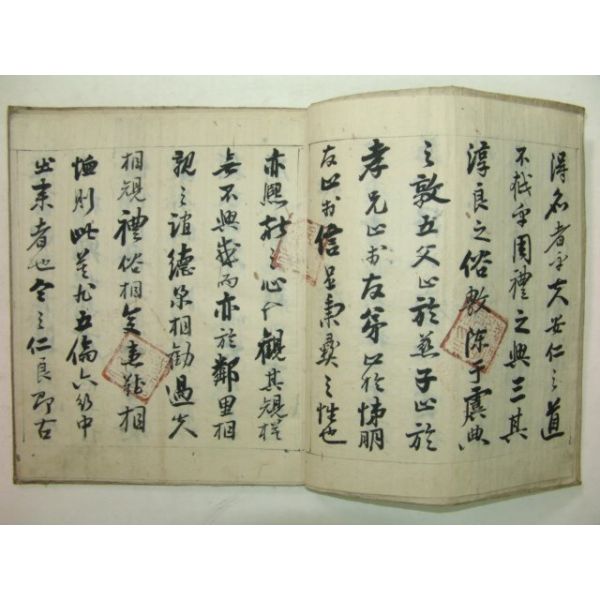 得名者乎夫安仁之道
不越乎周禮之興三其
淳良之俗敷陳于虞典
之敦五父止於慈子止於
孝兄止於友弟止於悌朋
友止於信是秉彝之性也
亦興於之心仁觀其規模
無不興感而亦於鄰里相
親之誼德業相勸過失
相規禮俗相交患難相
恤則此是九五倫六行中
出來者也今之仁良即古